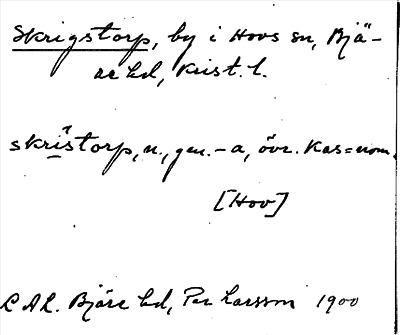 Skrigstorp, by i Hovs sn, Bjä-
re hd, Krist. l.
skrīstorp, n., gen. -a, övr. kas=nom.
[Hov]
LAL. Bjäre hd, Per Larsson 1900